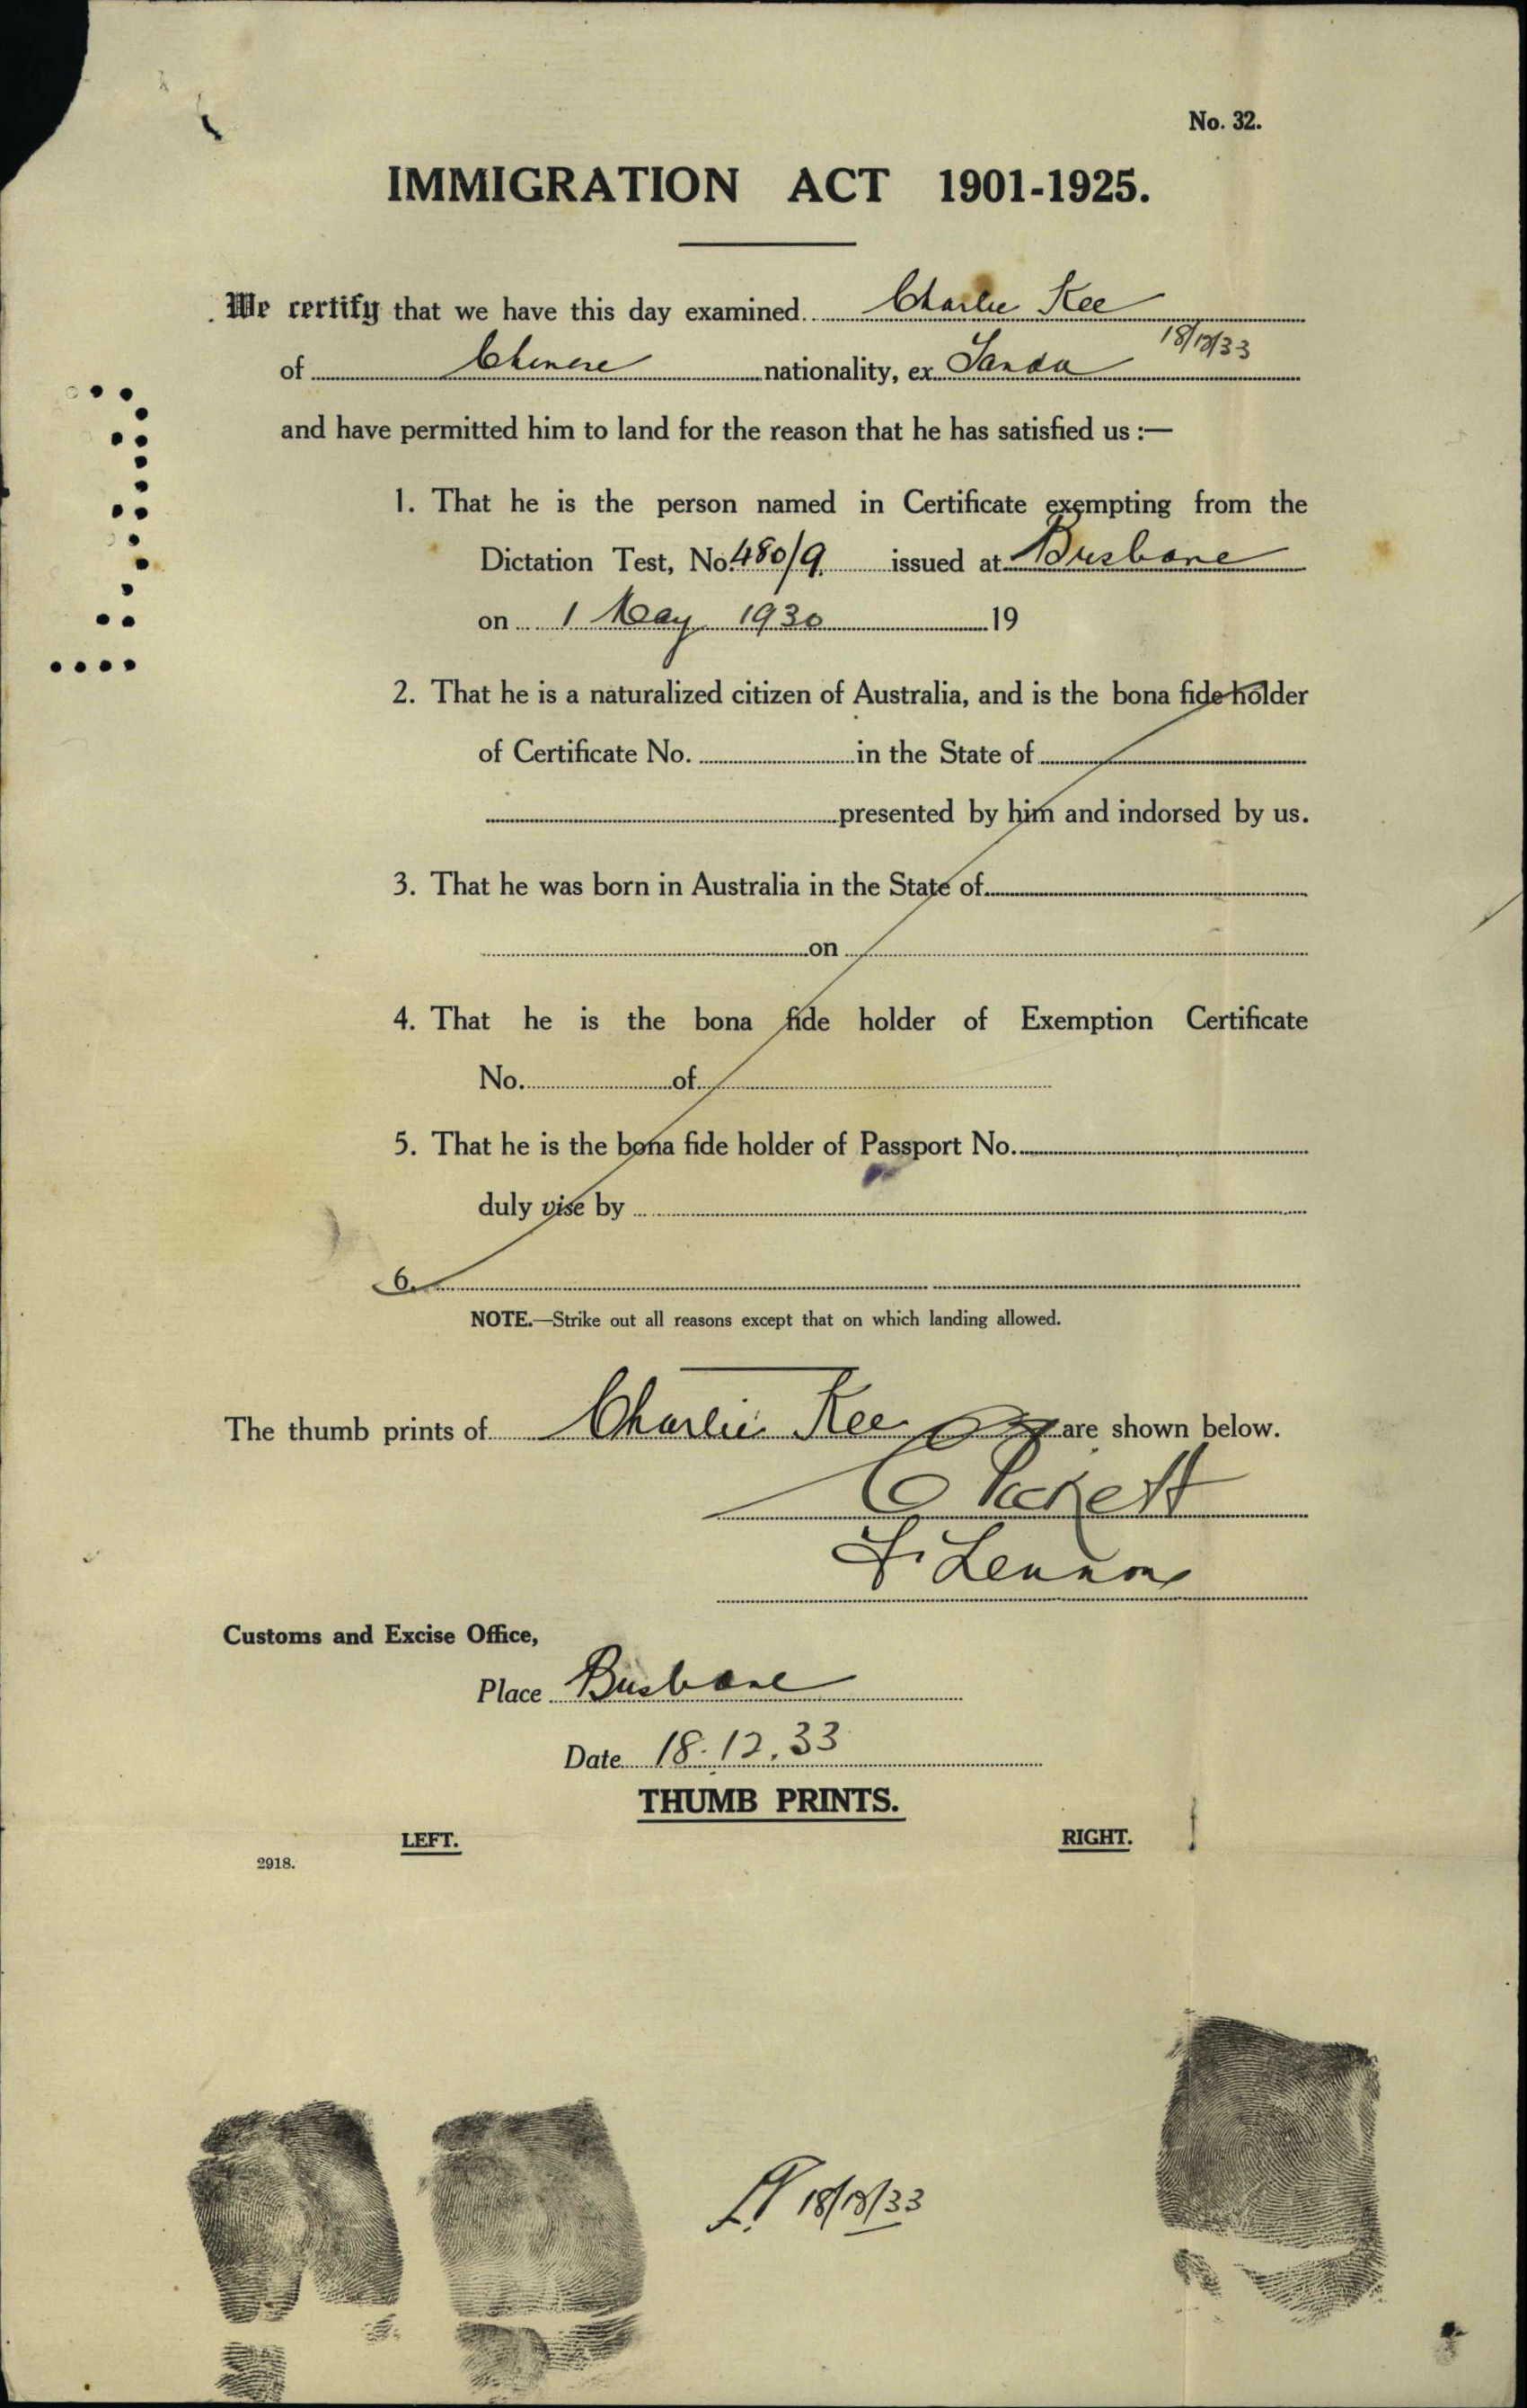 No. 32.
IMMIGRATION ACT 1901-1925.
We certify that we have this day examined Charlie Kee
18/12/33
of Chinese nationality, ex Tanda
and have permitted him to land for the reason that he has satisfied us :—
1. That he is the person named in Certificate exempting from the
Dictation Test, No. 480/9. issued at Brisbane
on 1 May 1930 19
2. That he is a naturalized citizen of Australia, and is the bona fide holder
of Certificate No. in the State of
presented by him and indorsed by us.
3. That he was born in Australia in the State of
on
4. That he is the bona fide holder of Exemption Certificate
No. of
5. That he is the bona fide holder of Passport No.
duly vise by
6.
NOTE.—Strike out all reasons except that on which landing allowed.
The thumb prints of Charlie Kee are shown below.
C Pickett
Lennon
Customs and Excise Office,
Place Brisbane
Date 18.12.33
THUMB PRINTS.
LEFT. RIGHT.
2918.
18/12/33